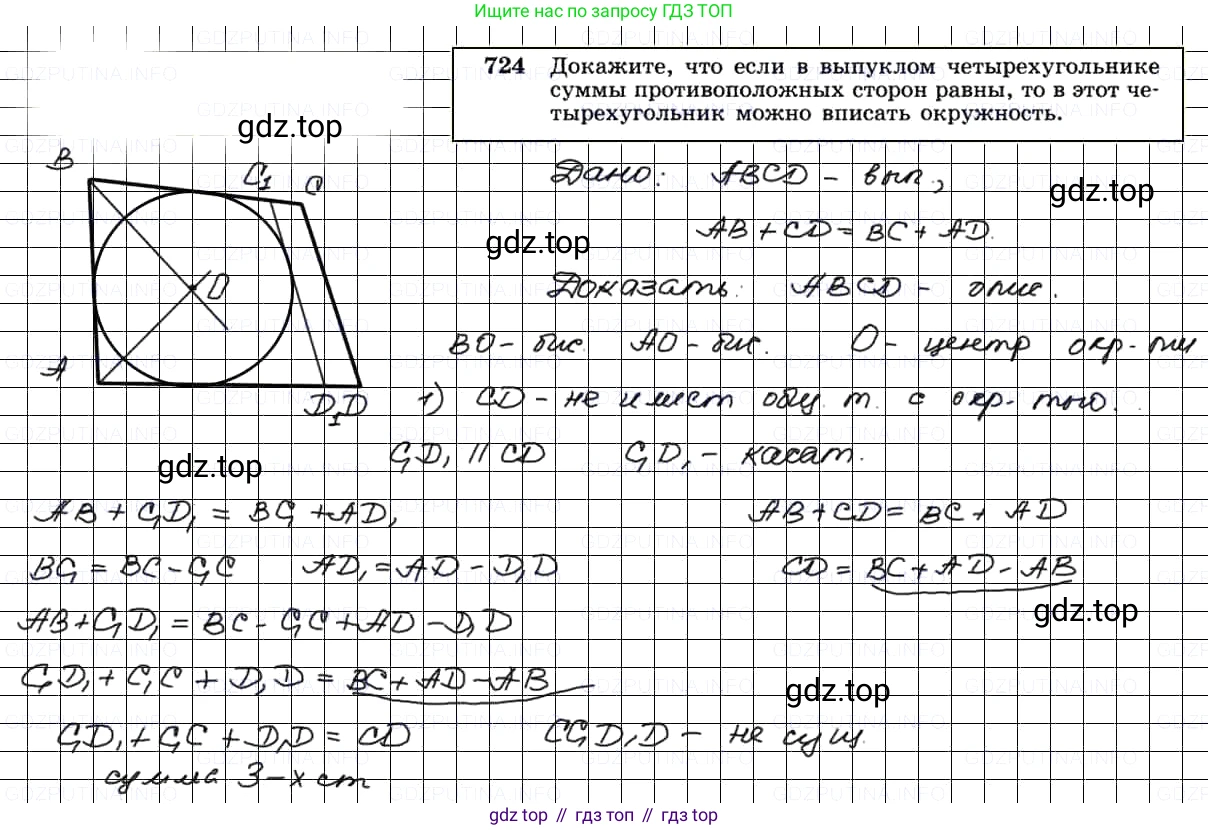 Ищите нас по запросу ГДЗ ТОП
724 Докажите, что если в выпуклом четырехугольнике
суммы противоположных сторон равны, то в этот че-
тырехугольник можно вписать окружность.
gdz.top
B C₁ C
O
A D₁ D
Дано: ABCD - вып.,
gdz.top
AB + CD = BC + AD.
gdz.top
Доказать: ABCD - опис.
BO - бис. AO - бис. O - центр окр-ти
1) CD - не имеет общ. т. с окр-тью.
C₁D₁ || CD C₁D₁ - касат.
gdz.top
AB + C₁D₁ = BC₁ + AD₁ AB + CD = BC + AD
BC₁ = BC - C₁C AD₁ = AD - D₁D CD = BC + AD - AB
gdz.top
AB + C₁D₁ = BC - C₁C + AD - D₁D
C₁D₁ + C₁C + D₁D = BC + AD - AB
gdz.top
C₁D₁ + C₁C + D₁D = CD CC₁D₁D - не сущ.
сумма 3-х ст
gdz top // гдз топ // gdz top